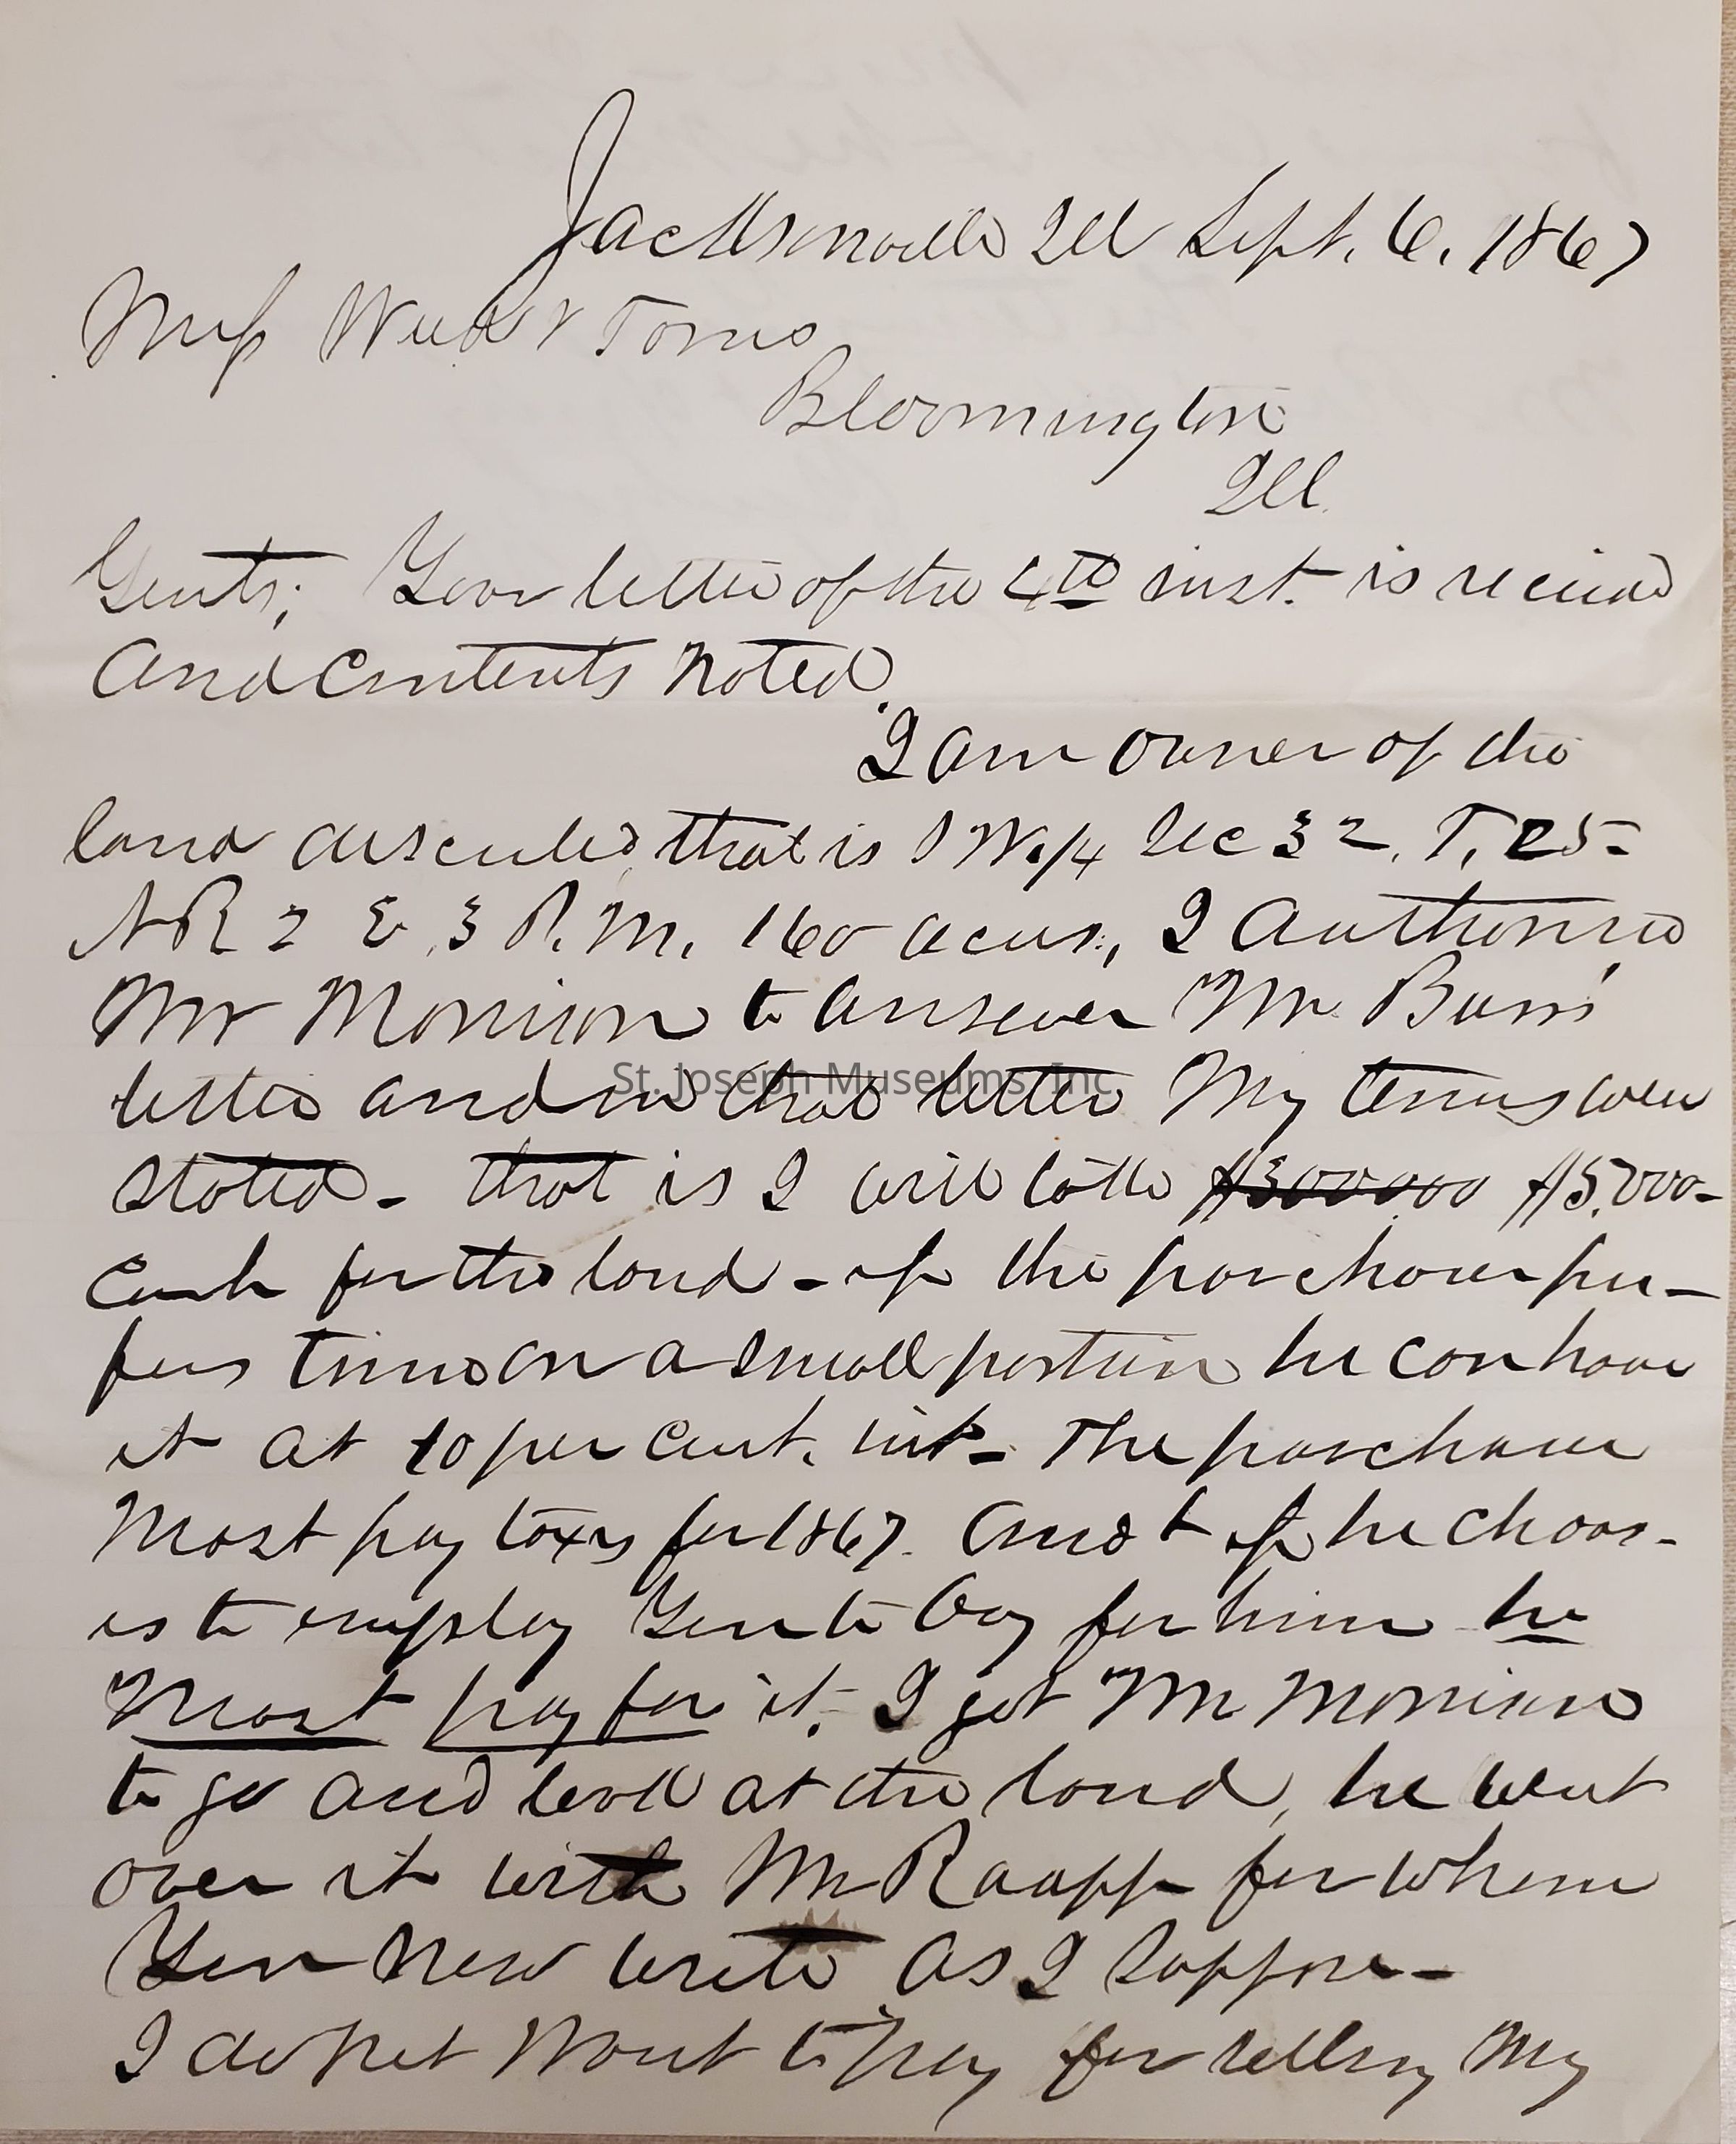 Jacksonville Ill Sept. 6, 1867
Mess Weed &
Bloomington
Ill
Gents; Your letter of the 4th inst. is received
and contents noted.
I am owner of the
land described that is S W. 1/4 Sec 32. T. 25-
N R 2 E 3 P. M. 160 acres, I authorized
Mr Morrison to answer Mr
letter and in that letter My terms were
stated - that is I will take $3000.00 $5.000-
Cash for the land - if the purchaser pre-
fers time on a small portion he can have
it at 10 per cent. int - The purchaser
Must pay taxes for 1867. And if he choos-
es to employ you to buy for him he
Must pay for it. I got Mr Morrison
to go and look at the land, he went
over it with Mr Raupp for whom
You now write as I suppose -
I do not want to pay for selling My
St. Joseph Museums, Inc.